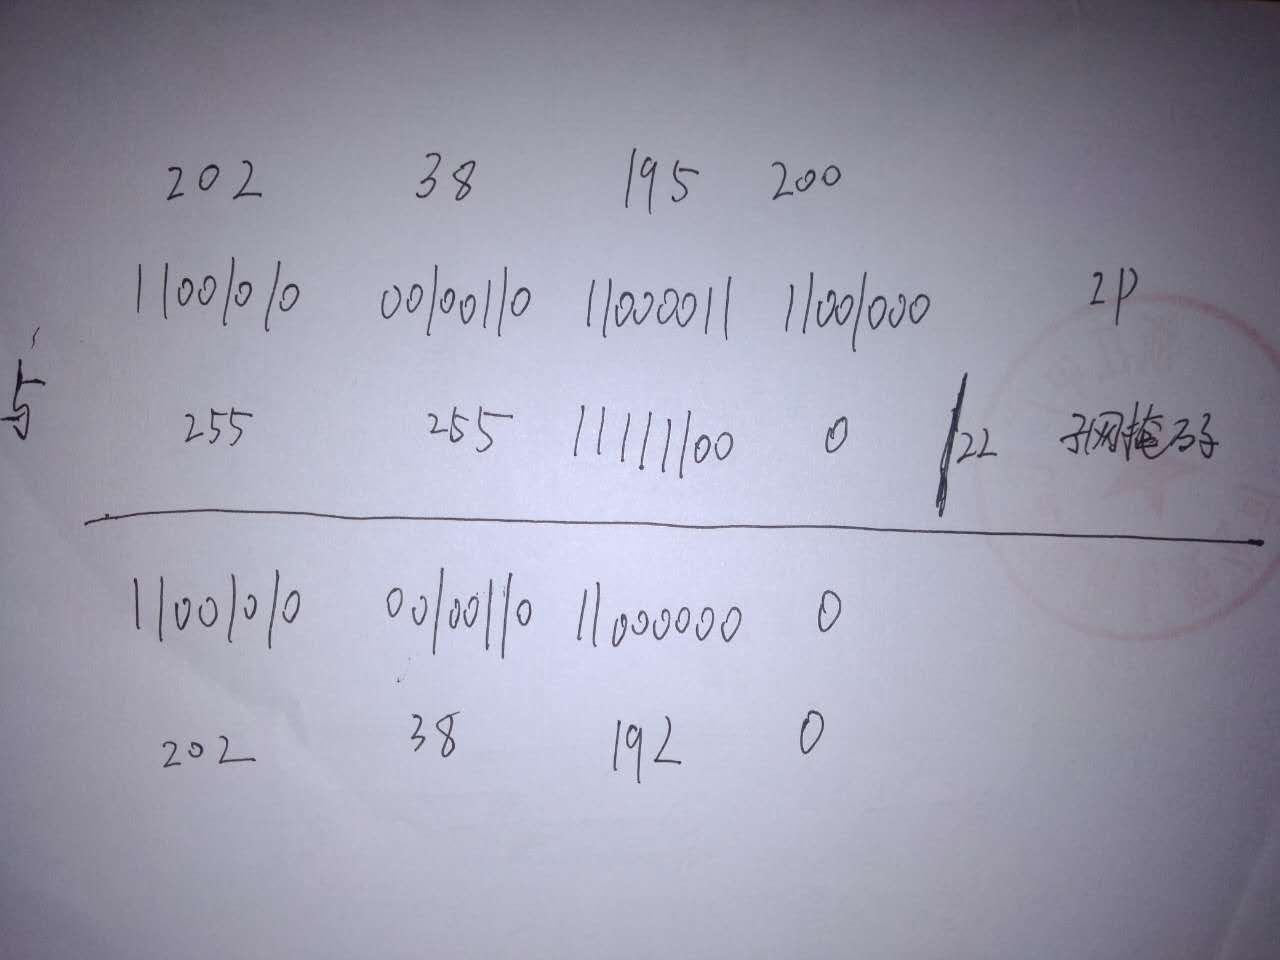 202 38 195 200
11001010 00100110 11000011 11001000 IP
与 255 255 11111100 0 /22 子网掩码
11001010 00100110 11000000 0
202 38 192 0